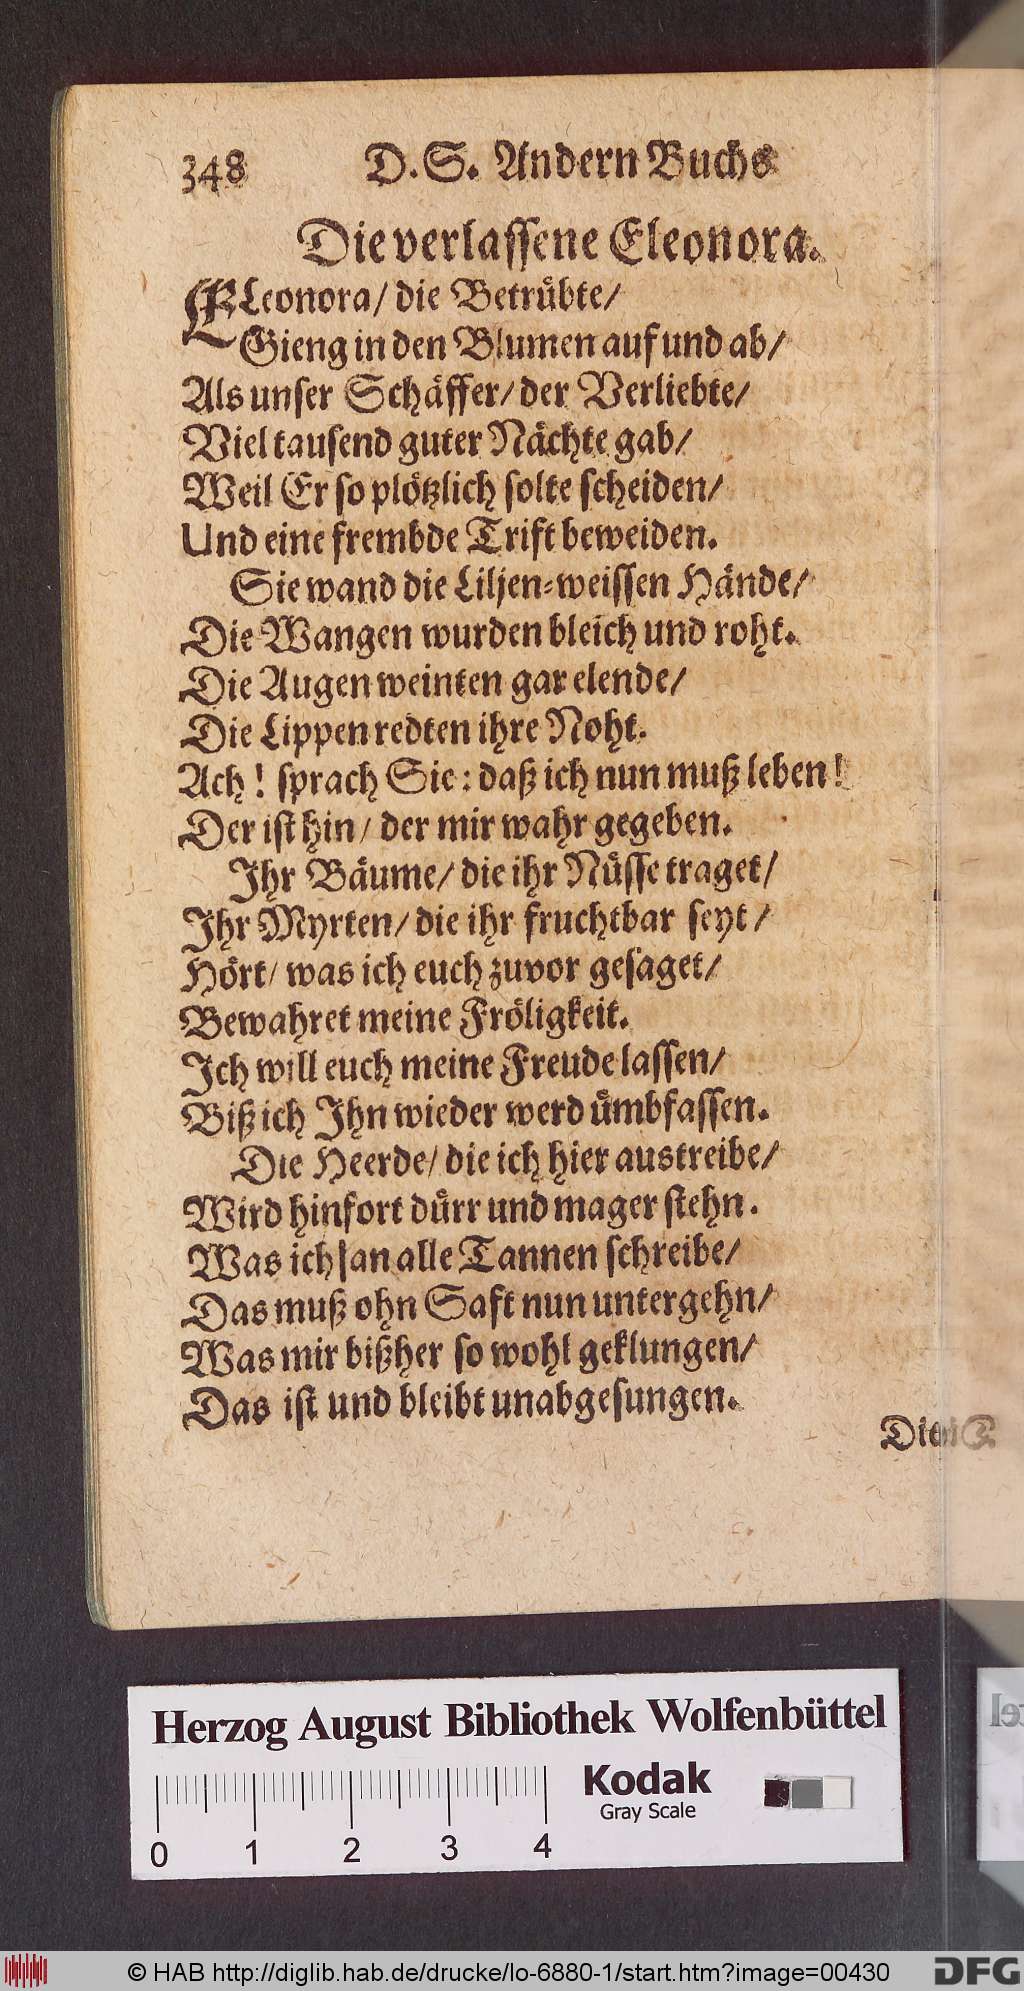 348 D. S. Andern Buchs
Die verlassene Eleonora.
ELeonora/ die Betrübte/
Gieng in den Blumen auf und ab/
Als unser Schäffer/ der Verliebte/
Viel tausend guter Nächte gab/
Weil Er so plötzlich solte scheiden/
Und eine frembde Trift beweiden.
Sie wand die Liljen-weissen Hände/
Die Wangen wurden bleich und roht.
Die Augen weinten gar elende/
Die Lippen redten ihre Noht.
Ach! sprach Sie: daß ich nun muß leben!
Der ist hin/ der mir wahr gegeben.
Ihr Bäume/ die ihr Nüsse traget/
Ihr Myrten/ die ihr fruchtbar seyt/
Hört/ was ich euch zuvor gesaget/
Bewahret meine Fröligkeit.
Ich will euch meine Freude lassen/
Biß ich Ihn wieder werd ümbfassen.
Die Heerde/ die ich hier austreibe/
Wird hinfort dürr und mager stehn.
Was ich an alle Tannen schreibe/
Das muß ohn Saft nun untergehn/
Was mir bißher so wohl geklungen/
Das ist und bleibt unabgesungen.
Herzog August Bibliothek Wolfenbüttel
Kodak
Gray Scale
0 1 2 3 4
© HAB http://diglib.hab.de/drucke/lo-6880-1/start.htm?image=00430
DFG